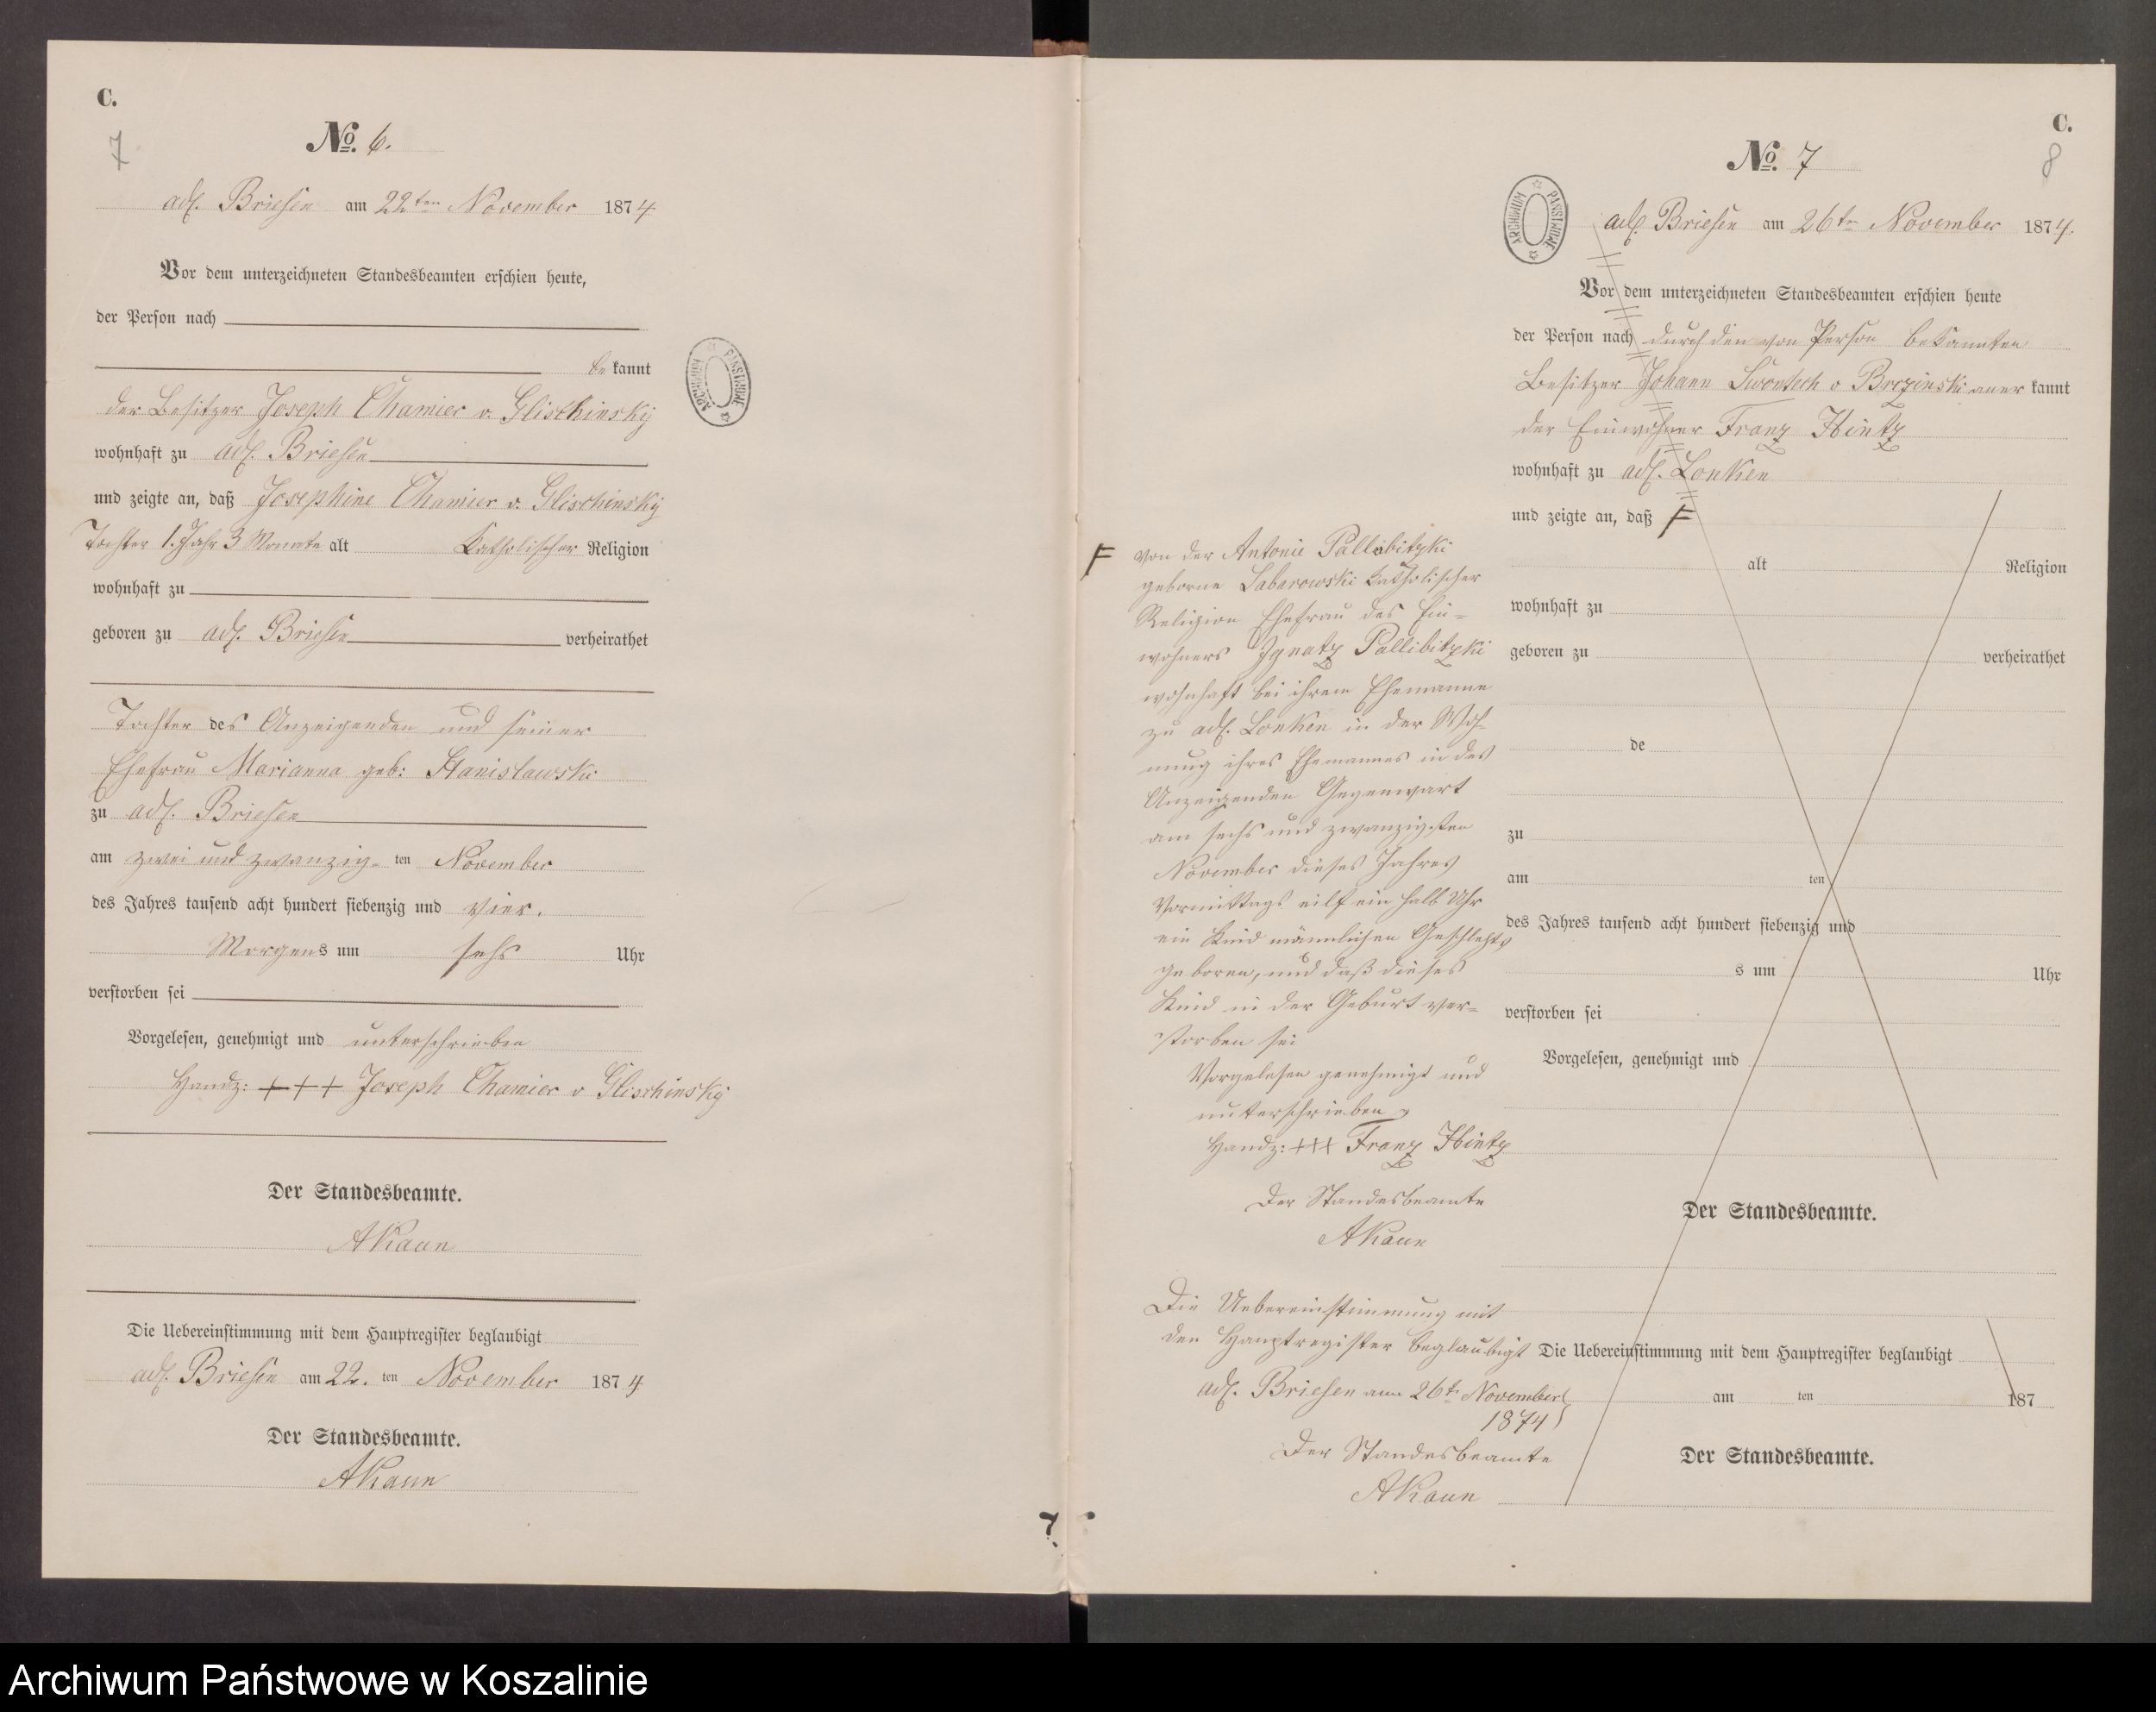 C.
7
No. 6.
adl. Briesen am 22ten November 1874
Vor dem unterzeichneten Standesbeamten erschien heute,
der Person nach
bekannt
der Besitzer Joseph Chamier v. Glischinsky
wohnhaft zu adl. Briesen
und zeigte an, daß Josephine Chamier v. Glischinsky
Tochter 1. Jahr 3 Monate alt Katholischer Religion
wohnhaft zu
geboren zu adl. Briesen verheirathet
Tochter des Anzeigenden und seiner
Ehefrau Marianna geb: Stanislawski
zu adl. Briesen
am zwei und zwanzig-ten November
des Jahres tausend acht hundert siebenzig und vier.
Morgens um sechs Uhr
verstorben sei
Vorgelesen, genehmigt und unterschrieben
Handz: +++ Joseph Chamier v Glischinsky
Der Standesbeamte.
AKaun
Die Uebereinstimmung mit dem Hauptregister beglaubigt
adl. Briesen am 22. ten November 1874
Der Standesbeamte.
AKaun
ARCHIWUM PAŃSTWOWE
C.
8
No. 7
ARCHIWUM PAŃSTWOWE
adl. Briesen am 26ten November 1874.
Vor dem unterzeichneten Standesbeamten erschien heute
der Person nach durch den von Person bekannten
Besitzer Johann v Brezinski anerkannt
der Einwohner Franz Hintz
wohnhaft zu adl. Lonken
und zeigte an, daß F
alt Religion
wohnhaft zu
geboren zu verheirathet
de
zu
am ten
des Jahres tausend acht hundert siebenzig und
s um Uhr
verstorben sei
Vorgelesen, genehmigt und
Der Standesbeamte.
Die Uebereinstimmung mit dem Hauptregister beglaubigt
am ten 187
Der Standesbeamte.
F von der Antonie Pallubitzki
geborne Labarowski katholischer
Religion Ehefrau des Ein-
wohners Ignatz Pallibitzki
wohnhaft bei ihrem Ehemanne
zu adl. Lonken in der Woh-
nung ihres Ehemannes in des
Anzeigenden Gegenwart
am sechs und zwanzigsten
November dieses Jahres
Vormittags eilf ein halb Uhr
ein Kind männlichen Geschlechts
geboren, und daß dieses
Kind in der Geburt ver-
storben sei
Vorgelesen genehmigt und
unterschrieben
Handz: +++ Franz Hintz
Der Standesbeamte
AKaun
Die Uebereinstimmung mit
den Hauptregister beglaubigt
adl. Briesen am 26ten November
1874
Der Standesbeamte
AKaun
Archiwum Państwowe w Koszalinie